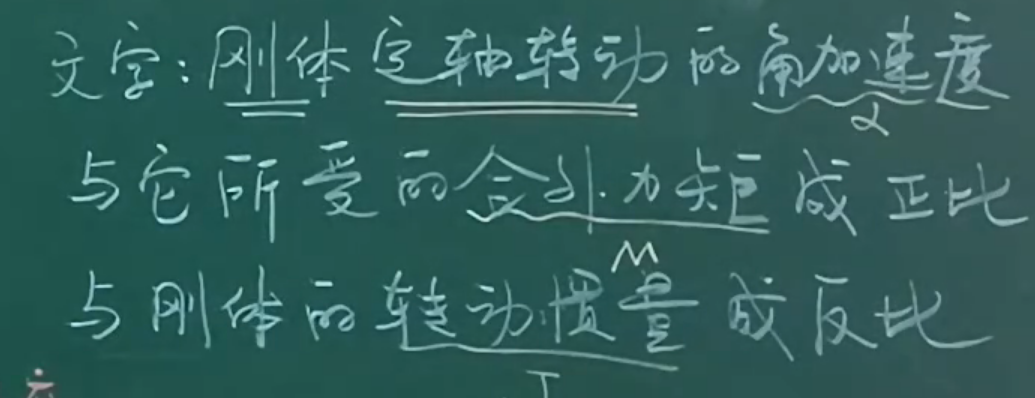 文字:刚体定轴转动的角加速度
α
与它所受的合外力矩成正比
M
与刚体的转动惯量成反比